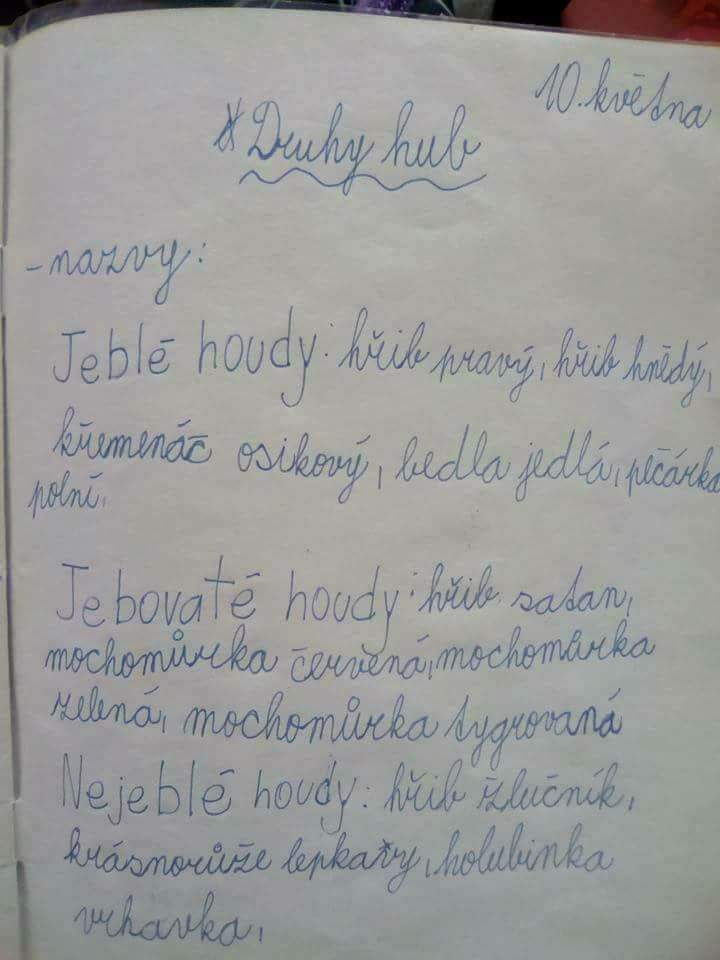 10. května
* Druhy hub
- nazvy:
Jeblé houdy: hřib pravý, hřib hnědý,
křemenáč osikový, bedla jedlá, pečárka
polní,
Jebovaté houdy: hřib satan,
mochomůrka červená, mochomůrka
zelená, mochomůrka tygrovaná
Nejeblé houdy: hřib žlučník,
krásnorůže lepkavy, holubinka
vrhavka,